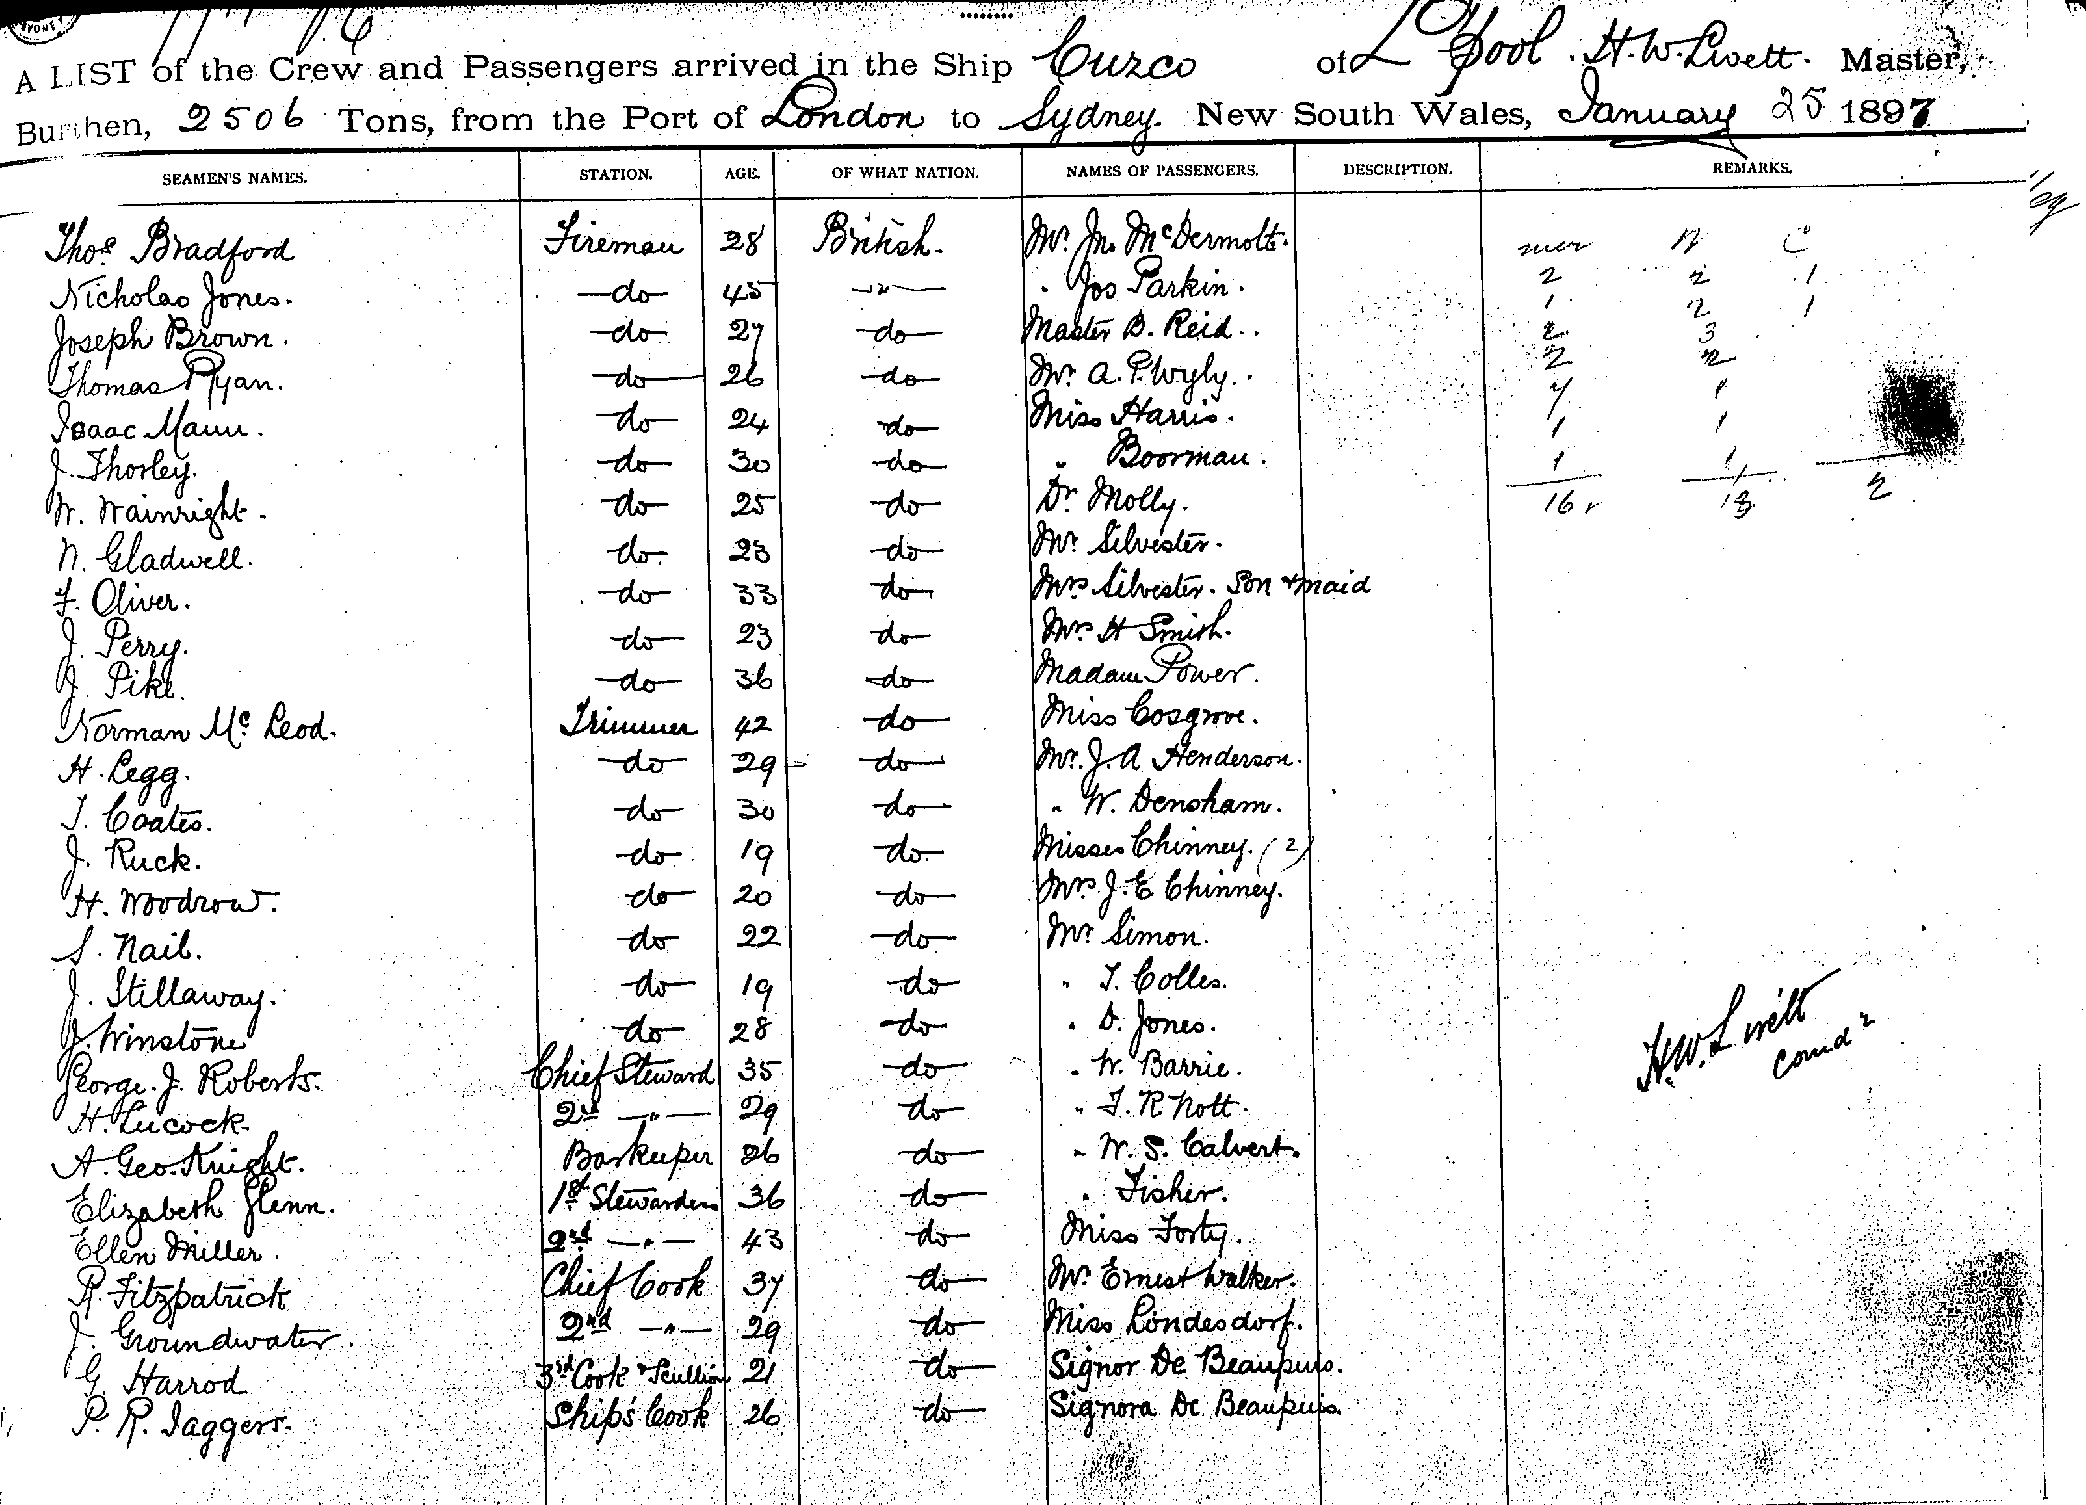 A LIST of the Crew and Passengers arrived in the Ship Cuzco of L'pool. H. W. Livett. Master,
Burthen, 2506 Tons, from the Port of London to Sydney. New South Wales, January 25 1897
SEAMEN'S NAMES. STATION. AGE. OF WHAT NATION. NAMES OF PASSENGERS. DESCRIPTION. REMARKS.
Thos Bradford Fireman 28 British. Mr. Jn. McDermott. C
Nicholas Jones. do 45 " " Jos Parkin. 2 2 1
Joseph Brown. do 27 do Master B. Reid.. 1 2 1
Thomas Ryan. do 26 do Mr. A. P. Wyly.. 2 3
Isaac Mann. do 24 do Miss Harris. 2 2
J. Thorley. do 30 do " Boorman. 1 1
W. Wainright. do 25 do Dr Molly. 16 18 2
N. Gladwell. do 23 do Mr. Silvester.
F. Oliver. do 33 do Mrs Silvester. Son & maid
J. Perry. do 23 do Mrs H Smith.
J. Pike. do 36 do Madam Power.
Norman Mc Leod. Trimmer 42 do Miss Cosgrove.
H. Legg. do 29 do Mr. J. A Henderson.
T. Coates. do 30 do " W. Densham.
J. Ruck. do 19 do Misses Chinney. (2)
H. Woodrow. do 20 do Mrs J. E Chinney.
S. Nail. do 22 do Mr Simon.
J. Stillaway. do 19 do " T. Colles.
J. Winstone do 28 do " D. Jones.
George. J. Roberts. Chief Steward 35 do " W. Barrie.
H. Lucock. 2nd " 29 do " F. R Nott.
A. Geo. Knight. Barkeeper 26 do " W. S. Calvert.
Elizabeth Glenn. 1st Stewardess 36 do " Fisher.
Ellen Miller. 2nd " 43 do Miss Forty.
R. Fitzpatrick Chief Cook 37 do Mr. Ernest Walker.
J. Groundwater. 2nd " 29 do Miss Londesdorf.
G Harrod 3rd Cook & Scullion 21 do Signor De Beaupuis.
P. R. Jaggers. Ship's Cook 26 do Signora De Beaupuis.
H. W. Livett
Comdr